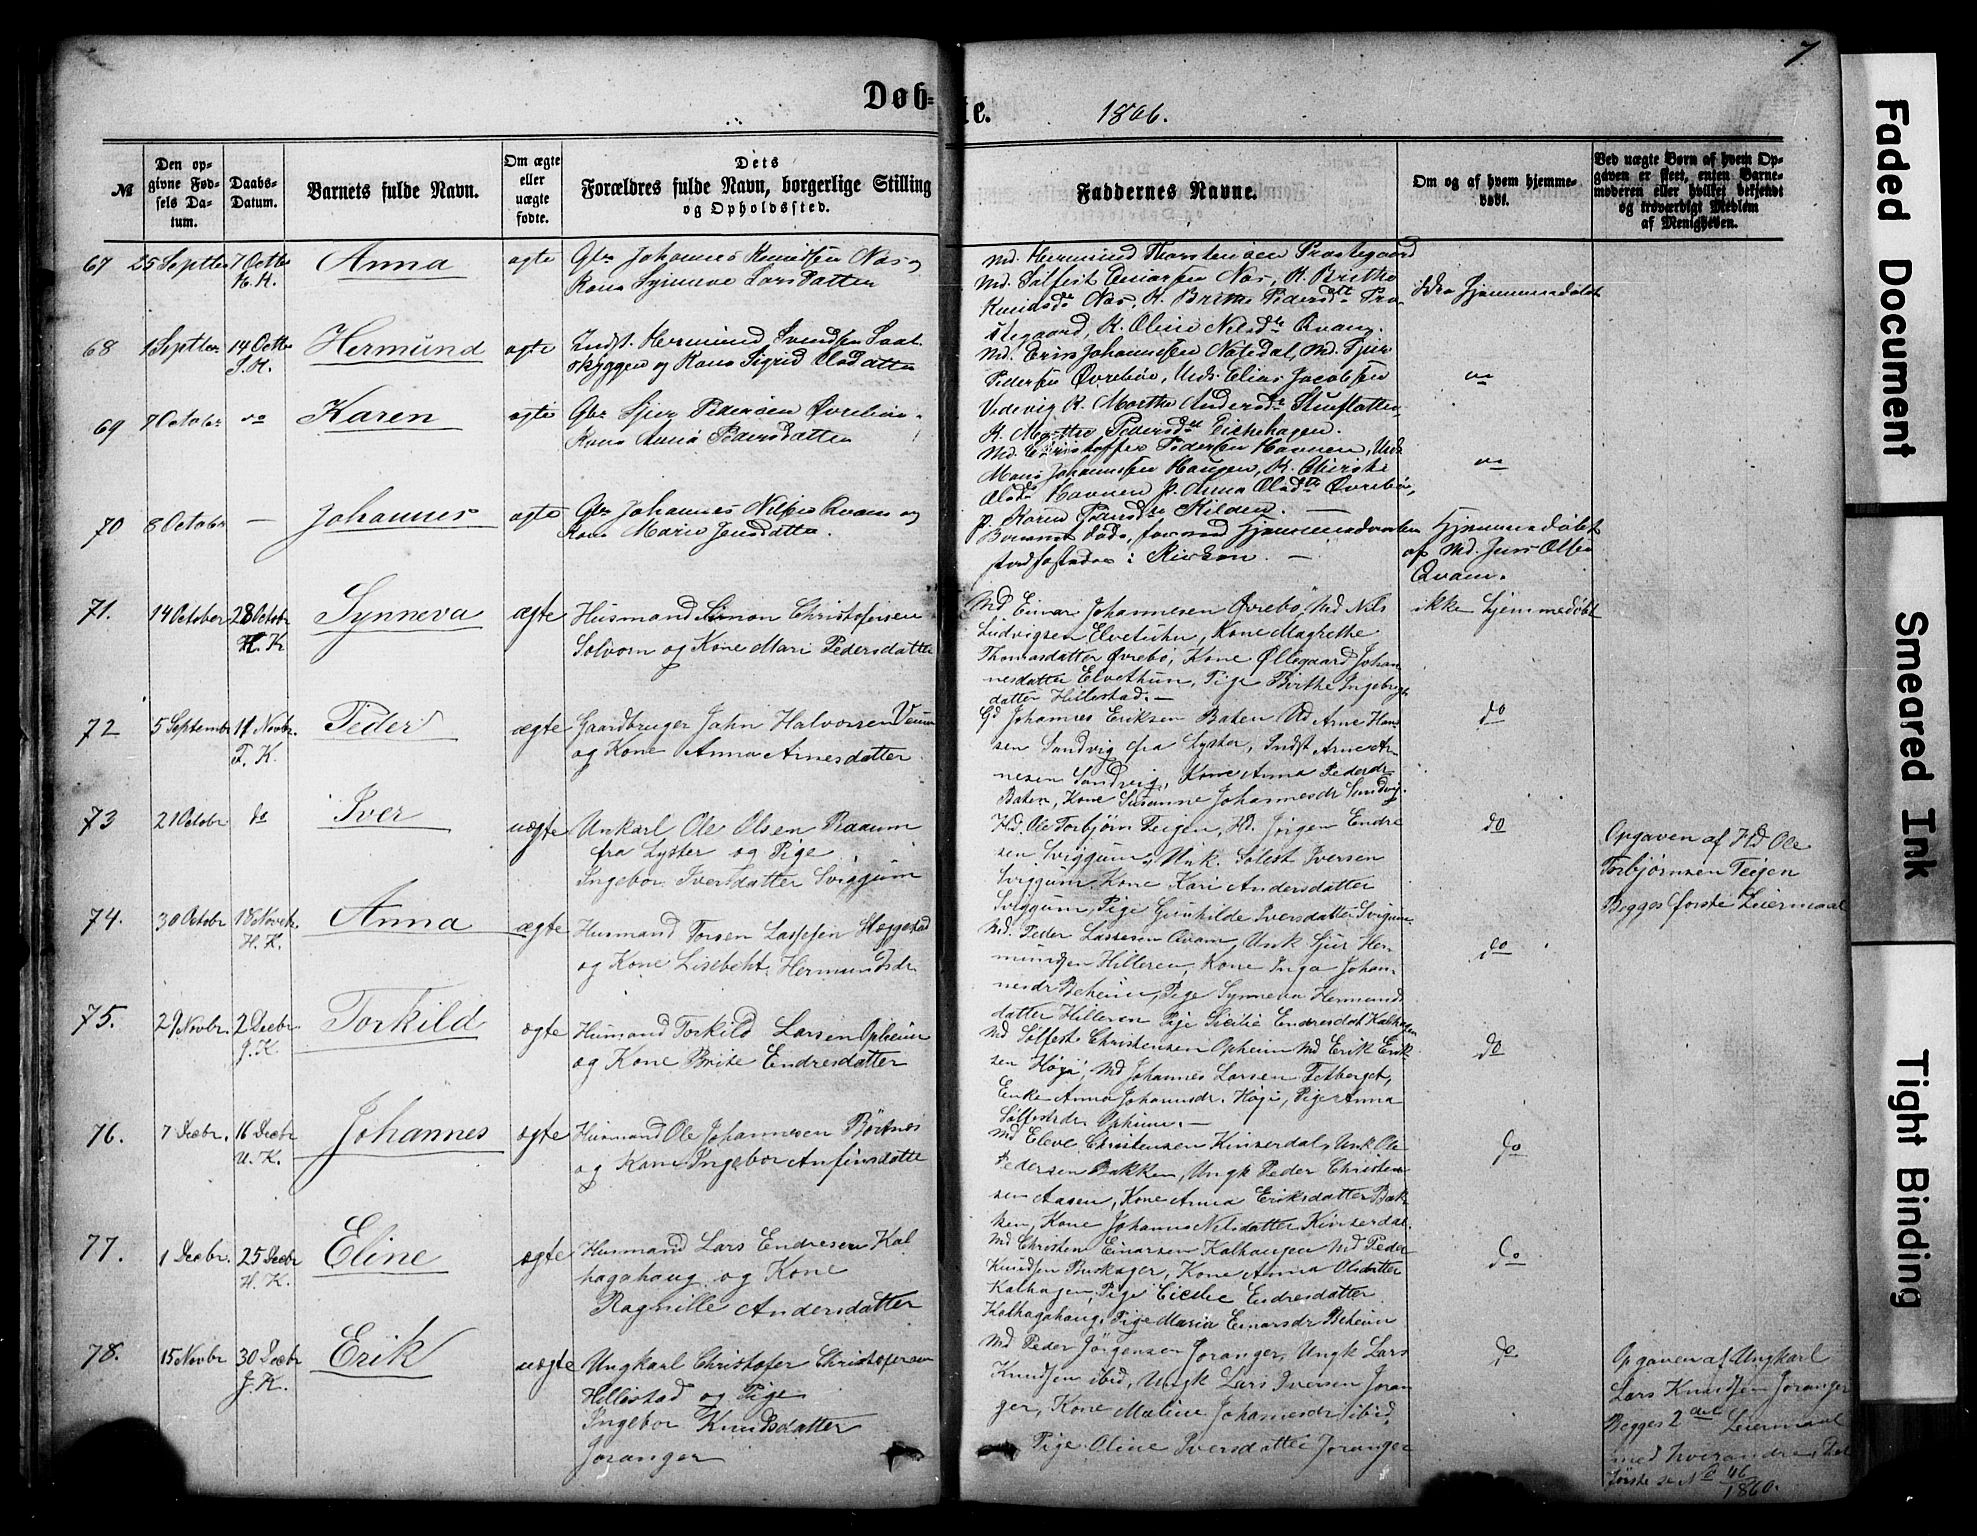 7.
Døbte. 1866.
№
Den opgivne Fødsels Datum.
Daabs-Datum.
Barnets fulde Navn.
Om ægte eller uægte fødte.
Dets Forældres fulde Navn, borgerlige Stilling og Opholdssted.
Faddernes Navne.
Om og af hvem hjemmedøbt.
Ved uægte Børn af hvem Opgaven er skeet, enten Barnemoderen eller hvilket bekjendt og troværdigt Medlem af Menigheden.
67 25 Septbr 7 Octbr Anna ægte Gbr Johannes Knudsen Næs og
H. K. Kone Synneve Larsdatter
Md. Hermund Thorstensen Prestegaard
Knudsdr Næs, K. Brithe Pedersdtt Præ-
stegaard, K. Oline Nilsdtr Qvam.
ikke hjemmedøbt
68 1 Septbr 14 Octbr Hermund ægte Indst. Hermund Svendsen
S. K. og Kone Sigrid Olsdatter
Md. Johannessen Md. Sjur
Pedersen Øvrebø, Unds Elias Jacobsen
K. Marthe Andersdr
K. Marthe Pedersdt
do
69 7 Octobr do Karen ægte Gbr Sjur Pedersen Øvrebø
Kone Anna Pedersdatter
Md. Christoffer Pedersen Havnen, Unds
Mons Johannesen Haugen, K.
Olsdr Havnen p. Anna Olsdtr Øvrebø,
p. Karen Pedersdtr Kilden.
do
70 8 Octobr — Johannes ægte Gbr Johannes Nilsen Qvam og
Kone Marie Jensdatter.
Barnet døde, førend Hjemmedaaben
stadfæstedes i Kirken.
Hjemmedøbt
af Md. Jens Olsen
Qvam.
71. 14 October 28 Octobr Synneva ægte Husmand Simon Christofersen
H. K Solvorn og Kone Mari Pedersdatter
Md Einar Johannesen Øvrebø, Md Nils
Ludvigsen Elvetun, Kone Magrethe
Thomasdatter Øvrebø, Kone Øllegaard Johan-
nesdatter Elvethun, Pige Birthe Ingebrigt-
datter Hillestad. —
ikke hjemmedøbt
72 5 Septembr 11 Novbr. Peder ægte Gaardbruger John Halvorsen Venum
F. K. og Kone Anna Arnesdatter.
Gd Johannes Eriksen Baten Gd Arne Han-
sen Sandvig fra Lyster, Indst Arne Ar-
nesen Sandvig, Kone Anna Pedersdr
Baten, Kone Susanne Johannesdr Sandvig.
do
73 21 Octobr do Iver uægte Unkarl Ole Olsen Raaum
fra Lyster og Pige
Ingebor Iversdatter Sviggum
Hd. Ole Torbjørn Teigen, Hd. Jørgen Endre
sen Sviggum, Unk. Sølfest Iversen
Sviggum, Kone Kari Andersdatter
Sviggum, Pige Gunhilde Iversdatter Sviggum
do
Opgaven af Hd Ole
Torbjørnsen Teigen
Begges første Leiermaal
74. 30 Octobr 18 Novebr. Anna ægte Husmand Torsen Lassesen Heggestad
H. K. og Kone Lisebeht Hermundsdr.
Md. Peder Lassesen Qvam, Unk Sjur Her-
mundsen Hilleren, Kone Inga Johan-
nesdr Beheim, Pige Synneva Hermunds
datter Hilleren Pige Sicilie Endresdat Kalhagen
do
75. 29 Novbr. 2 Decbr. Torkild ægte Husmand Torkild Larsen Opheim
J. K. og Kone Brite Endresdatter
Md Sølfest Christensen Opheim Md Erik Erik-
sen Høgi, Md Johannes Larsen Fetberget,
Enke Anna Johannsdr. Høgi, Pige Anna
Sølfestsdr. Opheim. —
do
76. 7 Decbr. 16 Decbr Johannes ægte Husmand Ole Johannesen Børtnes
U. K. og Kone Ingebor Anfinsdatte
Md Eleve Christensen Kinserdal, Unk Ole
Pedersen Bakken, Ungk Peder Christen-
sen Aasen, Kone Anna Eriksdatter Bak-
ken, Kone Johanne Nilsdatter Kinserdal.
do
77. 1 Decbr. 25 Decbr Eline ægte Husmand Lars Endresen Kal
H. K. hagahaug og Kone
Ragnille Andersdatter
Md Christen Einarsen Kalhagen Md Peder
Knudsen Buskager, Kone Anna Olsdatter
Kalhagen, Pige Cicelie Endresdatter
Kalhagahaug, Pige Maria Einarsdr Beheim
do
78. 15 Novbr 30 Decbr Erik uægte Ungkarl Christofer Christofersen
J. K. Hillestad og Pige
Ingebor Knudsdatter
Joranger
Md Peder Jørgensen Joranger, Ungk Lars
Knudsen ibid, Ungk Lars Iversen Joran-
ger, Kone Maline Johannesdr ibid,
Pige Oline Iversdatter Joranger
do
Opgaven af Ungkarl
Lars Knudsen Joranger
Begges 2det Leiermaal
med hverandre, det
første se No 46/1860.
Faded Document
Smeared Ink
Tight Binding